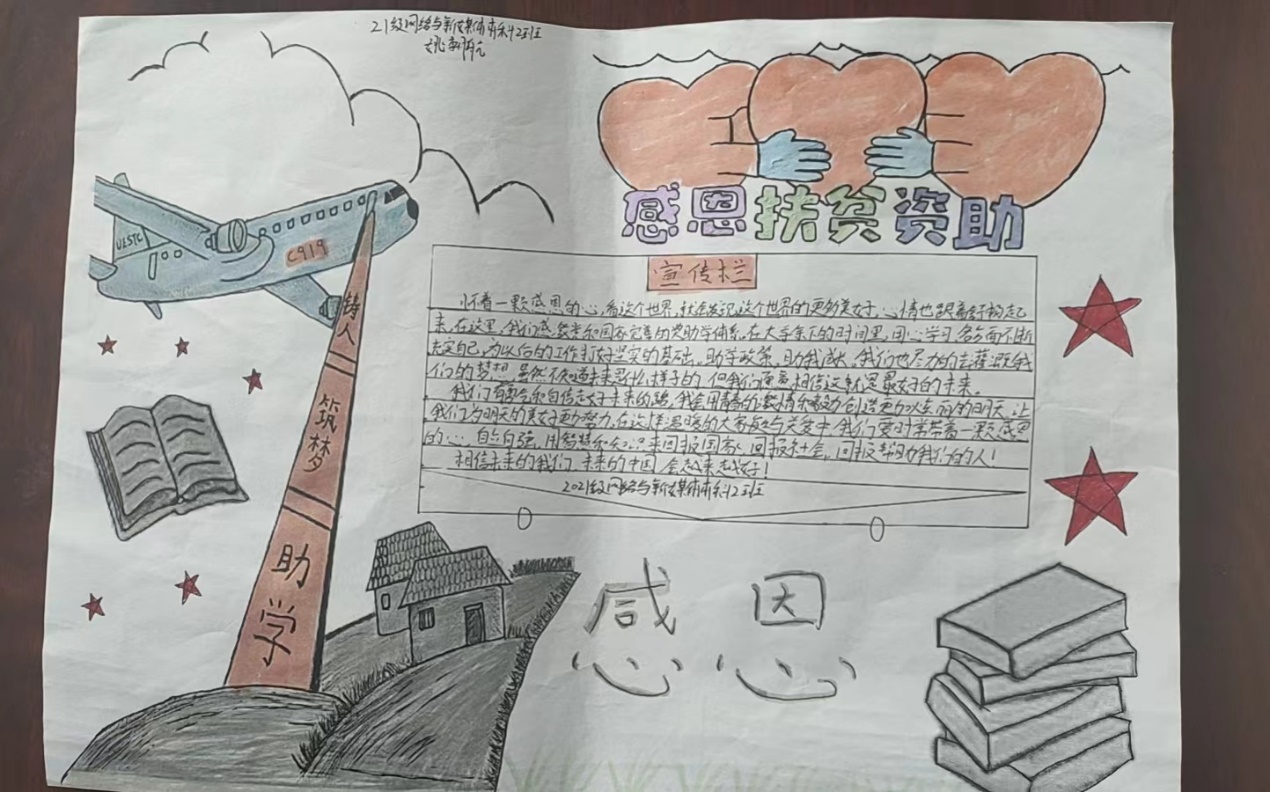 21级网络与新媒体本科2班
感恩扶贫资助
UESTC
C919
铸人
筑梦
助学
宣传栏
怀着一颗感恩的心看这个世界,就会发现这个世界的更多美好,心情也跟着好物起
来。在这里,我们感激党和国家完善的资助学体系,在大学余下的时间里,用心学习,各方面不断
充实自己,为以后的工作打好坚实的基础。助学政策,助我成长,我们也尽力的去灌溉我
们的梦想,虽然不知道未来是什么样子的,但我们愿意相信这就是最好的未来。
我们有憧憬和自信走好未来的路,我会用青春的激情和感动创造更加火红的明天,让
我们为明天的美好更加努力,在这样温暖的大家庭与关爱中,我们要时常带着一颗感恩
的心,自立自强,用智慧和知识来回报国家,回报社会,回报帮助我们的人!
相信未来的我们,未来的中国,会越来越好!
2021级网络与新媒体本科2班
感恩